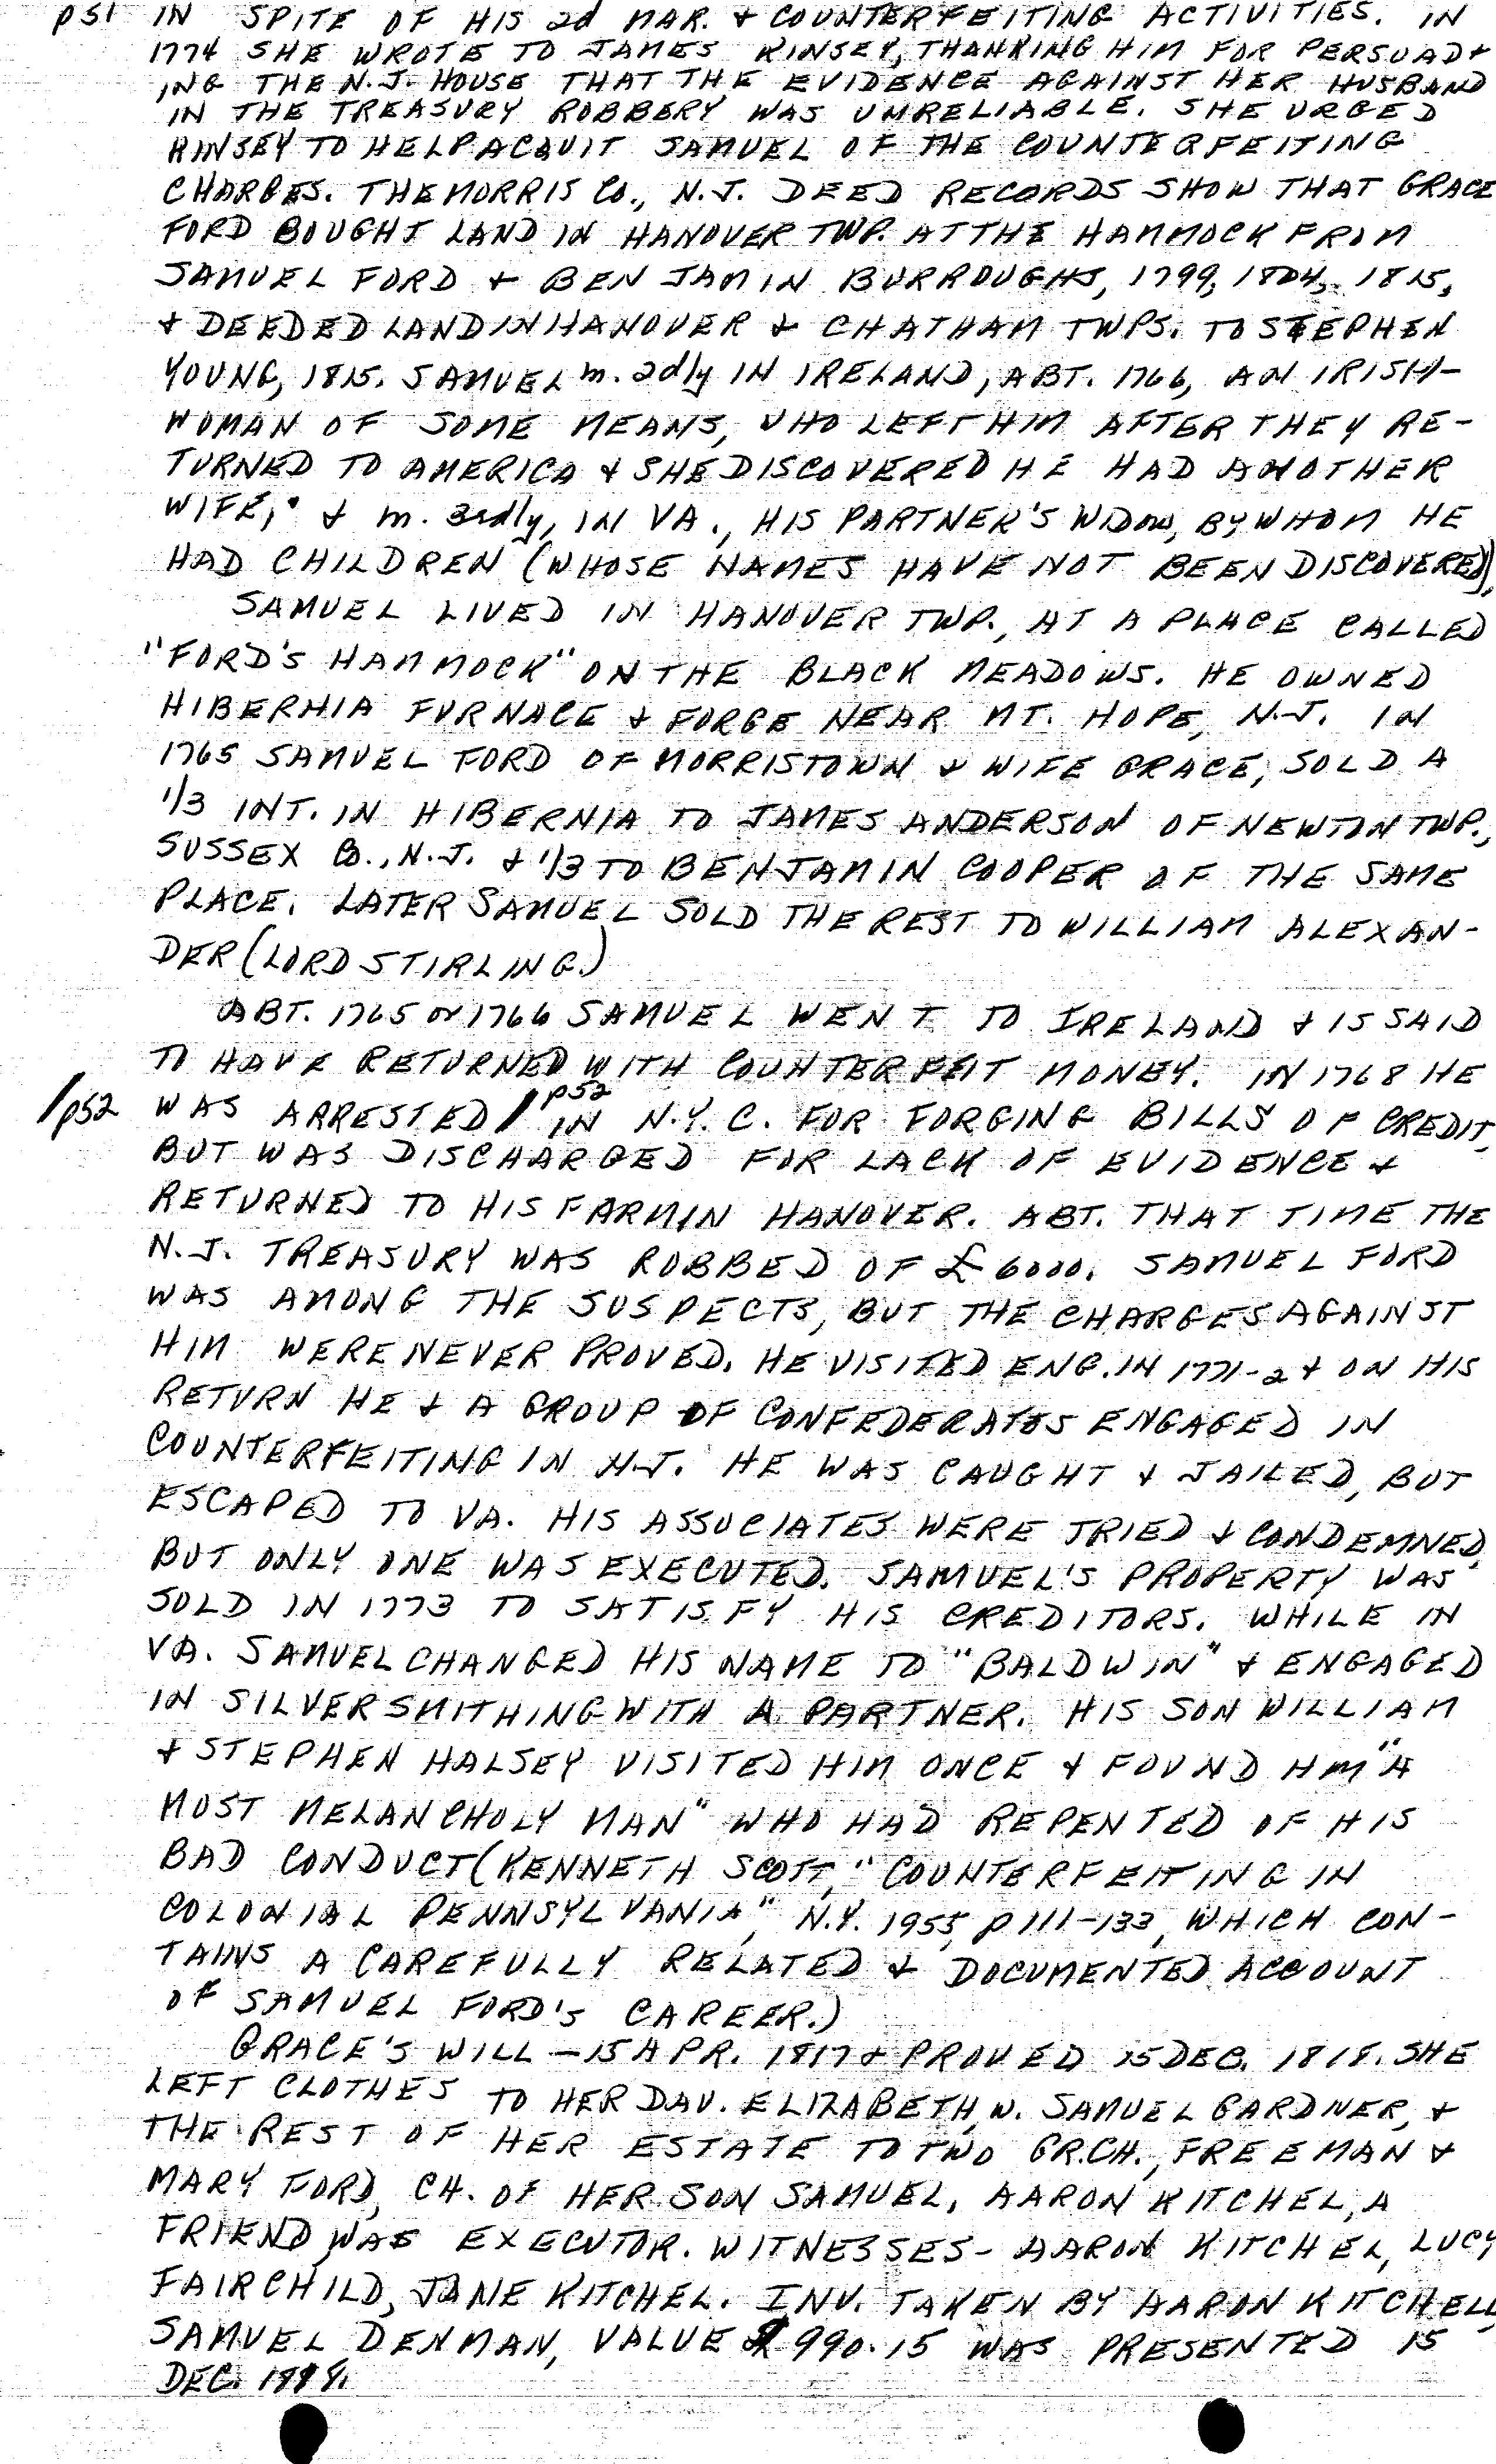 p51 IN SPITE OF HIS 2d MAR. & COUNTERFEITING ACTIVITIES. IN
1774 SHE WROTE TO JAMES KINSEY, THANKING HIM FOR PERSUAD-
ING THE N.J. HOUSE THAT THE EVIDENCE AGAINST HER HUSBAND
IN THE TREASURY ROBBERY WAS UNRELIABLE. SHE URGED
KINSEY TO HELP ACQUIT SAMUEL OF THE COUNTERFEITING
CHARGES. THE MORRIS CO., N.J. DEED RECORDS SHOW THAT GRACE
FORD BOUGHT LAND IN HANOVER TWP. AT THE HAMMOCK FROM
SAMUEL FORD & BENJAMIN BURROUGHS, 1799, 1804, 1815,
& DEEDED LAND IN HANOVER & CHATHAM TWPS. TO STEPHEN
YOUNG, 1815. SAMUEL m. 2dly IN IRELAND, ABT. 1766, AN IRISH-
WOMAN OF SOME MEANS, WHO LEFT HIM AFTER THEY RE-
TURNED TO AMERICA & SHE DISCOVERED HE HAD ANOTHER
WIFE; & m. 3rdly, IN VA., HIS PARTNER'S WIDOW, BY WHOM HE
HAD CHILDREN (WHOSE NAMES HAVE NOT BEEN DISCOVERED),
SAMUEL LIVED IN HANOVER TWP., AT A PLACE CALLED
"FORD'S HAMMOCK" ON THE BLACK MEADOWS. HE OWNED
HIBERNIA FURNACE & FORGE NEAR MT. HOPE, N.J. IN
1765 SAMUEL FORD OF MORRISTOWN & WIFE GRACE, SOLD A
1/3 INT. IN HIBERNIA TO JAMES ANDERSON OF NEWTON TWP.,
SUSSEX CO., N.J. & 1/3 TO BENJAMIN COOPER OF THE SAME
PLACE. LATER SAMUEL SOLD THE REST TO WILLIAM ALEXAN-
DER (LORD STIRLING.)
ABT. 1765 or 1766 SAMUEL WENT TO IRELAND & IS SAID
TO HAVE RETURNED WITH COUNTERFEIT MONEY. IN 1768 HE
/p52 WAS ARRESTED / p52 IN N.Y.C. FOR FORGING BILLS OF CREDIT,
BUT WAS DISCHARGED FOR LACK OF EVIDENCE &
RETURNED TO HIS FARM IN HANOVER. ABT. THAT TIME THE
N.J. TREASURY WAS ROBBED OF £6000. SAMUEL FORD
WAS AMONG THE SUSPECTS, BUT THE CHARGES AGAINST
HIM WERE NEVER PROVED. HE VISITED ENG. IN 1771-2 & ON HIS
RETURN HE & A GROUP OF CONFEDERATES ENGAGED IN
COUNTERFEITING IN N.J. HE WAS CAUGHT & JAILED, BUT
ESCAPED TO VA. HIS ASSOCIATES WERE TRIED & CONDEMNED,
BUT ONLY ONE WAS EXECUTED. SAMUEL'S PROPERTY WAS
SOLD IN 1773 TO SATISFY HIS CREDITORS. WHILE IN
VA. SAMUEL CHANGED HIS NAME TO "BALDWIN" & ENGAGED
IN SILVERSMITHING WITH A PARTNER. HIS SON WILLIAM
& STEPHEN HALSEY VISITED HIM ONCE & FOUND HIM "A
MOST MELANCHOLY MAN" WHO HAD REPENTED OF HIS
BAD CONDUCT (KENNETH SCOTT, "COUNTERFEITING IN
COLONIAL PENNSYLVANIA", N.Y. 1955, p 111-133, WHICH CON-
TAINS A CAREFULLY RELATED & DOCUMENTED ACCOUNT
OF SAMUEL FORD'S CAREER.)
GRACE'S WILL - 15 APR. 1817 & PROVED 15 DEC. 1818. SHE
LEFT CLOTHES TO HER DAU. ELIZABETH, W. SAMUEL GARDNER, &
THE REST OF HER ESTATE TO TWO GR.CH., FREEMAN &
MARY FORD, CH. OF HER SON SAMUEL. AARON KITCHEL, A
FRIEND, WAS EXECUTOR. WITNESSES - AARON KITCHEL, LUCY
FAIRCHILD, JANE KITCHEL. INV. TAKEN BY AARON KITCHELL,
SAMUEL DENMAN, VALUE $990.15 WAS PRESENTED 15
DEC. 1818.